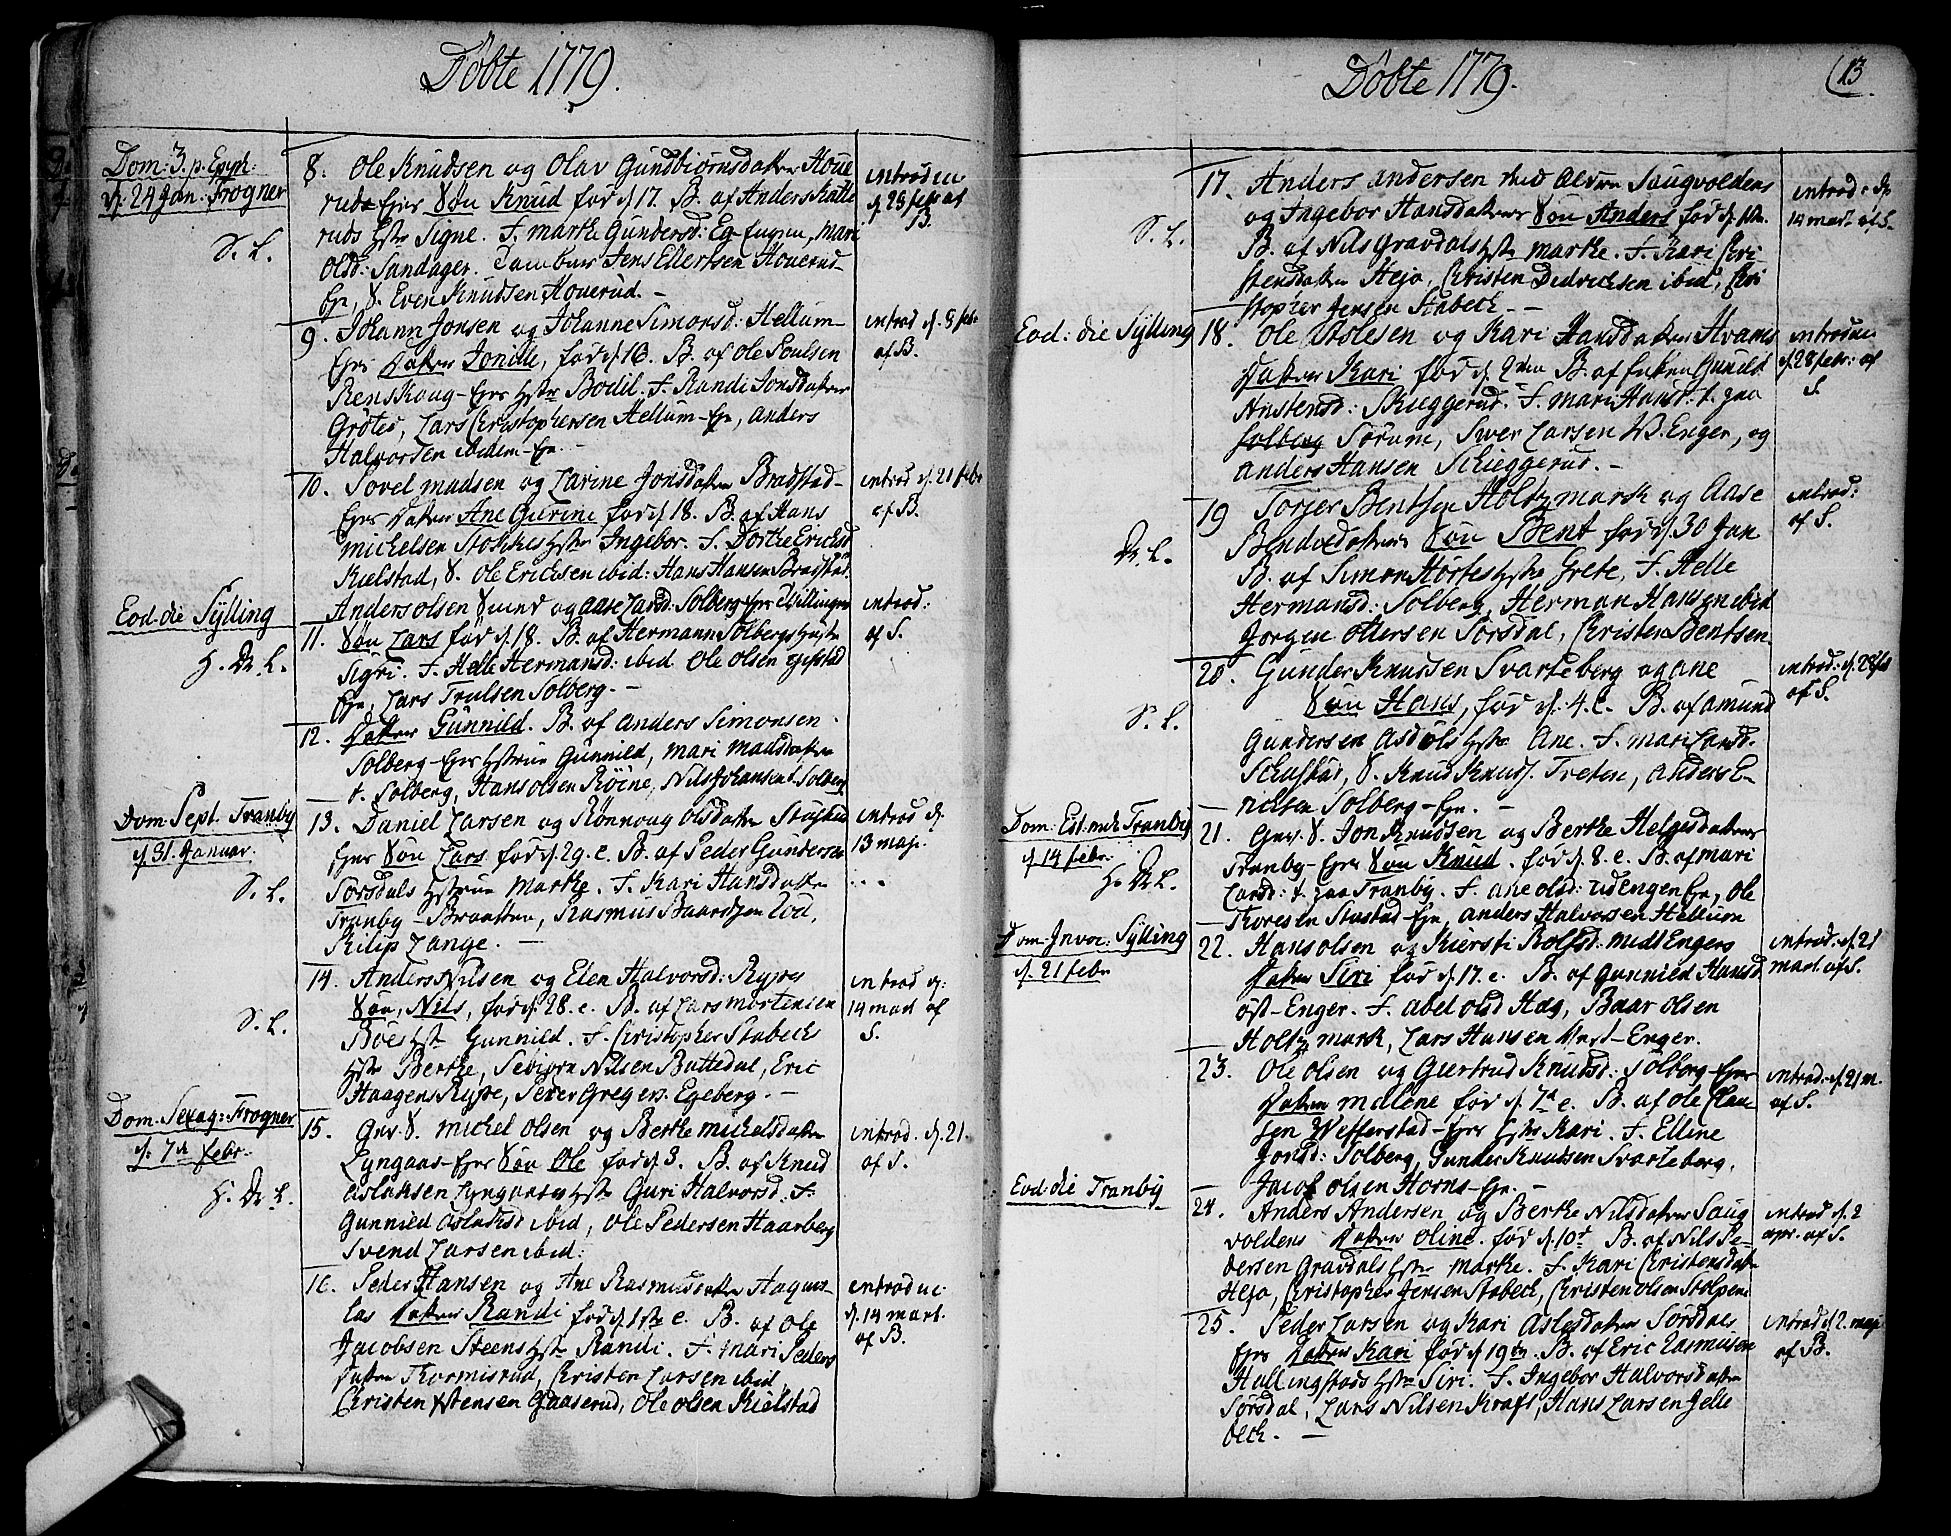 Döbte 1779.
Dom: 3. p. Epiph:
d. 24 Jan: Frogner
S. L.
8. Ole Knudsen og Olav Gundbiörnsdatter Houe
ruds Ejer Sön Knud föd d. 17. B. af Anders Kattе
ruds Hstr Signe. F. Marthe Gundersd: Eg-Eugen, Mari
Olsd: Sandager. Jens Ellertsen Houerud-
Eje, S. Even Knudsen Houerud. -
introduc
d. 28 febr af
B.
9. Johann Jonsen og Johanne Simonsd: Hellum-
Ejer Datter Jonille, föd d. 16. B. af Ole Poulsen
Renskoug-Ejer Hstr Bodil. F. Randi Jonsdatter
Gröter, Lars Christophersen Hellum-Eje, Anders
Halvorsen ibidem-Eje. -
introd d. 9 febr
af B.
10. Sovel Madsen og Karine Jonsdatter Bradstad-
Ejer Datter Ane Gurine föd d. 18. B. af Hans
Michelsen Stokkes Hstr Ingebor. F. Dorthe Ericksd
Kielstad, S. Ole Ericksen ibid: Hans Hansen Bradstad.
introd d. 21 febr
af B.
Eod: die Sylling
H. Dr. L.
Anders Olsen Svend og Aase Larsd: Solberg-Ejer Tvillinger
11. Sön Lars föd d. 18. B. af Hermann Solbergs Hustr
Sigri. F. Helle Hermansd: ibid Ole Olsen Gifstad
Eje, Lars Trulsen Solberg. -
introd:
af S.
12. Datter Gunnild. B. af Anders Simonsen
Solberg-Ejer Hstrue Gunnild, Mari Madsdatter
t. Solberg, Hans Olsen Röine, Nils Johansen t. Solberg
Dom Sept. Tranby
d. 31. Januar.
S. L.
13. Daniel Larsen og Rönnoug Olsdatter Stustad
Ejer Sön Lars föd d. 29. e. B. af Peder Gundersen
Sorsdals Hstrue Marthe. F. Kari Hansdatter
Tranby-Braatten, Rasmus Baardsen Eod,
Kilip Lange. -
introd d.
13 maji.
14. Anders Nilsen og Elen Halvorsd: Rypes
Sön, Nils, föd d. 28. e. B. af Lars Mortensen
Böes Hstr Gunnild. F. Christopher Stabecks
Hstr Berthe, Sebiörn Nilsen Buttedal, Eric
Haagens Rype, Peder Gregers. Egeberg. -
S. L.
introd d.
14 mart af
S.
Dom. Sexag: Frogner
d. 7de febr.
H. Dr. L.
15. Gnr S. Michel Olsen og Berthe Michelsdatter
Lyngaas-Ejer Sön Ole föd d. 3. B. af Knud
Aslaksen Lyngaases Hstr Guri Halvorsd. F.
Gunnild Aslaksd ibid, Ole Pedersen Haarberg
Svend Larsen ibid:
introd. d. 21.
af S.
16. Peder Hansen og Ane Rasmusdatter Aagaas-
Datter Randi föd d. 1ste e. B. af Ole
Jacobsen Steens Hstr Randi. F. Mari Peders
datter Thormisrud, Christen Larsen ibid,
Christen Gaaserud, Ole Olsen Kielstad
introduc
d. 14 mart.
af B.
Döbte 1779.
13
17. Anders Andersen Saugvoldens
og Ingebor Hansdatters Sön Anders föd d.
B. af Nils Gravdals Hstr Marthe. F. Kari Chri-
stensdatter Hejo, Christen Didricksen ibid, Chri
stopher Jensen Stabeck. -
S. L.
introd: d.
14 mart. af S.
Eod: die Sylling
18. Ole Aslesen og Kari Hansdatter Hvams
Datter Kari föd d. 2den B. af Enken Gunild
Anstensd: Skuggerud. F. Mari Hansd. t. paa
Solberg Sörum, Siver Larsen W. Enger, og
Anders Hansen Skuggerud. -
introduc
d. 28 febr: af
S.
19 Torger Bentsen Holtzmark og Aase
Bendixdatters Sön Bent föd d. 30 Jan
B. af Simen Hortes Hstr Grete, F. Helle
Hermansd: Solberg, Herman Hansen ibid
Jorgen Ottersen Sorsdal, Christen Bentsen.
Dr. L.
introd:
af S.
20. Gunder Knudsen Svarteberg og Ane
Sön Hans, föd d. 4. e. B. af Amund
Gundersen Asdöls Hstr Ane. F. Mari Larsd.
Schustad, S. Knud Knuds. Tveten, Anders E-
richsen Solberg-Eje. -
S. L.
introd: d. 28 feb
af S.
Dom: Est.mihi Tranby
d. 14 febr.
H. Dr. L.
21. Gnr. S. Jon Knudsen og Berthe Helgesdatter
Tranby-Ejer Sön Knud. föd d. 8. e. B. af Mari
Larsd: t. paa Tranby. F. Ane Olsd: Udengen Eje, Ole
Thoresen Stustad-Eje, Anders Halvorsen Hellum
Dom: Invoc: Sylling
d. 21 febr
22. Hans Olsen og Kiersti Rolfsd: Midt Engers
Datter Siri föd d. 17. e. B. af Gunnild Hansd
öst-Enger. F. Abel Olsd Hag, Baar Olsen
Holtzmark, Lars Hansen Vest-Enger.
introd. d. 21
mart. af S.
23. Ole Olsen og Giertrud Knudsd: Solberg-Ejer
Datter Malene föd d. 7de e. B. af Ole Clau
sen Wefferstad-Ejer Hstr Kari. F. Elline
Jonsd: Solberg, Gunder Knudsen Svarteberg,
Jacob Olsen Horns-Eje. -
introd: d. 21 m.
af S.
Eod: die Tranby
24. Anders Andersen og Berthe Nilsdatter Saug
voldens Datter Oline. föd d. 10de B. af Nils Pe-
dersen Gravdals Hstr Marthe. F. Kari Christensdatr
Hejo, Christopher Jensen Stabeck, Christen Olsen Stolpen
introd d. 2
apr. af S.
25. Peder Larsen og Kari Aslesdatter Sörsdals
Ejer Datter Kari föd d. 19de B. af Eric Rasmusen
Hallingstads Hstr Siri. F. Ingebor Halvorsdatter
Sörsdal, Lars Nilsen Kraft, Hans Larsen Jelle
beck. -
introd d. 2. maji
af B.